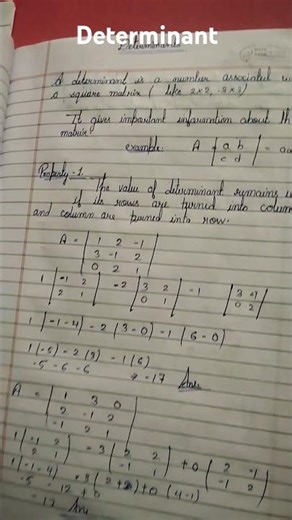 Determinant
Determinants
A determinant is a number associated
a square matrix ( like 2×2, -3×3)
It gives important information about
matrix
example A = | a b |
| c d | =
Property - 1
The value of determinant remains
if its rows are turned into
and column are turned into row.
A = | 1 2 -1 |
| 3 -1 2 |
| 0 2 1 |
1 | -1 2 | -2 | 3 2 | -1 | 3 -1 |
| 2 1 | | 0 1 | | 0 2 |
1 (-1-4) -2 (3-0) -1 (6-0)
1 (-5) -2 (3) -1 (6)
-5 -6 -6 -17 Ans
A = | 1 3 0 |
| 2 -1 2 |
| -1 2 1 |
1 | -1 2 | -3 | 2 2 | +0 | 2 -1 |
| 2 1 | | -1 1 | | -1 2 |
1 (-1-4) -3 (2+2) +0 (4-1)
-5 - 12 + 0
-17 Ans